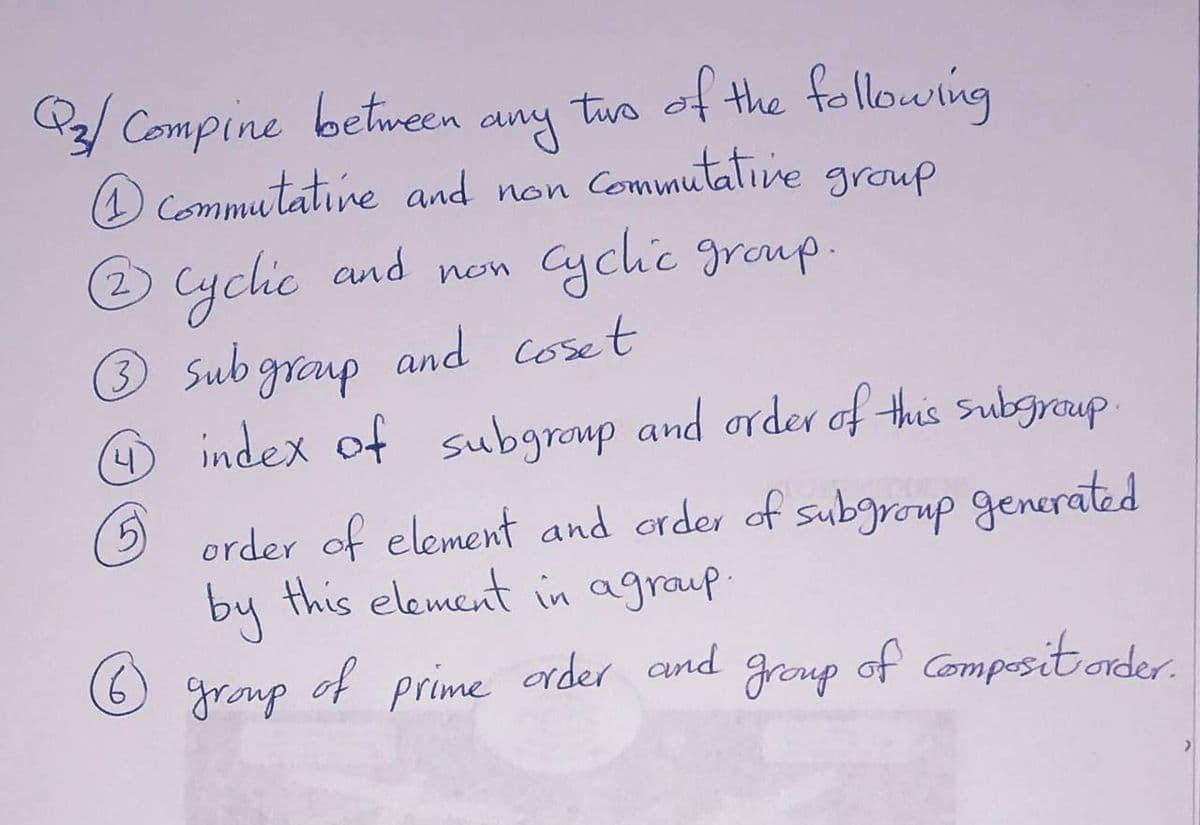 Q3/ Compine between any two of the following
① Commutative and non Commutative group
② Cyclic and non Cyclic group.
③ subgroup and coset
④ index of subgroup and order of this subgroup.
⑤ order of element and order of subgroup generated
by this element in agroup.
⑥ group of prime order and group of Composit order.